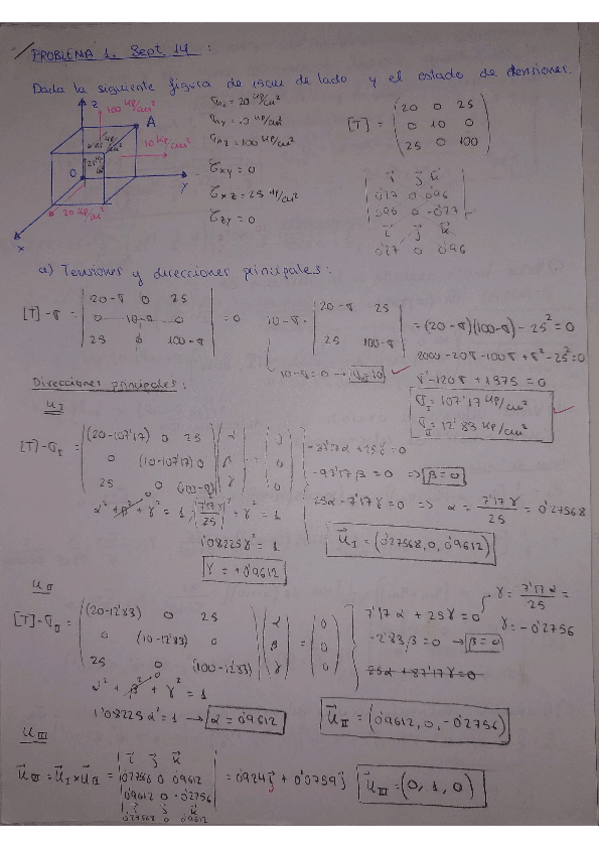 PROBLEMA 1. Sept 14 :
Dada la siguiente figura de 15cm de lado y el estado de tensiones.
Z
100 kp/cm²
A
10 kp/cm²
O
Y
20 kp/cm²
X
= 20 kp/cm²
= 100 kp/cm²
τxy = 0
τxz = 25 kp/cm²
τzy = 0
[T] =
20 0 25
0 10 0
25 0 100
i j k
0'27 0 0'96
0'96 0 -0'27
i j k
0'27 0 0'96
a) Tensiones y direcciones principales:
[T] - σ =
20-σ 0 25
0 10-σ 0
25 0 100-σ
= 0
10-σ ·
20-σ 25
25 100-σ
= (20-σ)(100-σ) - 25² = 0
2000 - 20σ - 100σ + σ² - 25² = 0
10-σ = 0 → σ = 10
σ² - 120σ + 1375 = 0
σI = 107'17 kp/cm²
σII = 12'83 kp/cm²
Direcciones principales:
uI
[T] - σI =
(20-107'17) 0 25
0 (10-107'17) 0
25 0
α
β
γ
=
0
0
-87'17α + 25γ = 0
-97'17β = 0 => β = 0
25α - 7'17γ = 0 => α = 7'17γ / 25 = 0'27568
α² + β² + γ² = 1
7'17γ / 25
² + γ² = 1
1'08225γ² = 1
γ = +0'9612
uI = (0'27568, 0, 0'9612)
uII
[T] - σII =
(20-12'83) 0 25
0 (10-12'83) 0
25 0 (100-12'83)
α
β
γ
=
0
0
0
7'17α + 25γ = 0
-2'83β = 0 → β = 0
25α + 87'17γ = 0
γ = 7'17α / 25 =
γ = -0'2756
α² + β² + γ² = 1
1'08225α² = 1 → α = 0'9612
uII = (0'9612, 0, -0'2756)
uIII
uIII = uI x uII =
i j k
0'2756 0 0'9612
0'9612 0 -0'2756
i j k
0'27568 0 0'9612
= 0'924j + 0'0759j
uIII = (0, 1, 0)